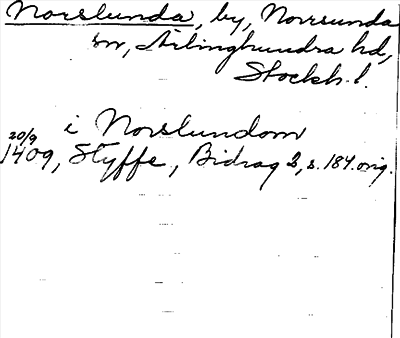 Norslunda, by, Norrsunda
sn, Ärlinghundra hd,
Stockh. l.
i Norslundom
20/9
1409, Styffe, Bidrag 2, s. 184. orig.